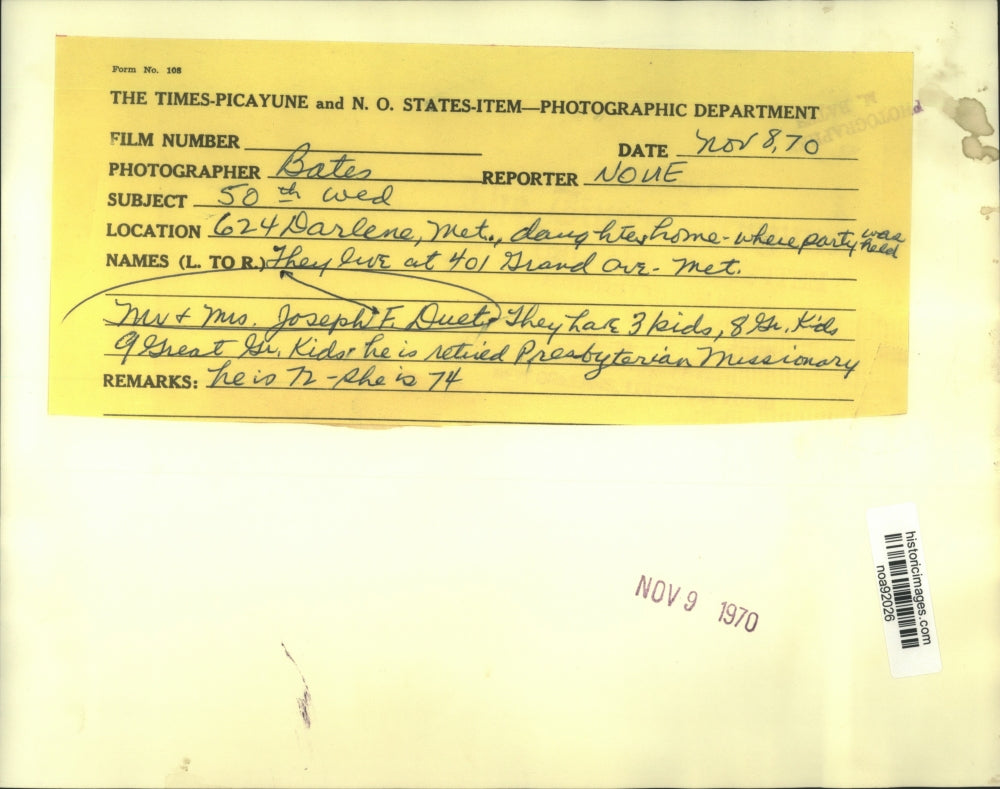 Form No. 108
THE TIMES-PICAYUNE and N. O. STATES-ITEM—PHOTOGRAPHIC DEPARTMENT
FILM NUMBER
DATE Nov 8, 70
PHOTOGRAPHER Bates
REPORTER NONE
SUBJECT 50th wed
LOCATION 624 Darlene, Met., daughters home - where party was held
NAMES (L. TO R.) They live at 401 Grand ave. Met.
Mr + Mrs. Joseph F. Duet. They have 3 kids, 8 Gr. Kids
9 Great Gr. Kids. he is retired Presbyterian Missionary
REMARKS: he is 72 - she is 74
NOV 9 1970
historicimages.com
noa92026